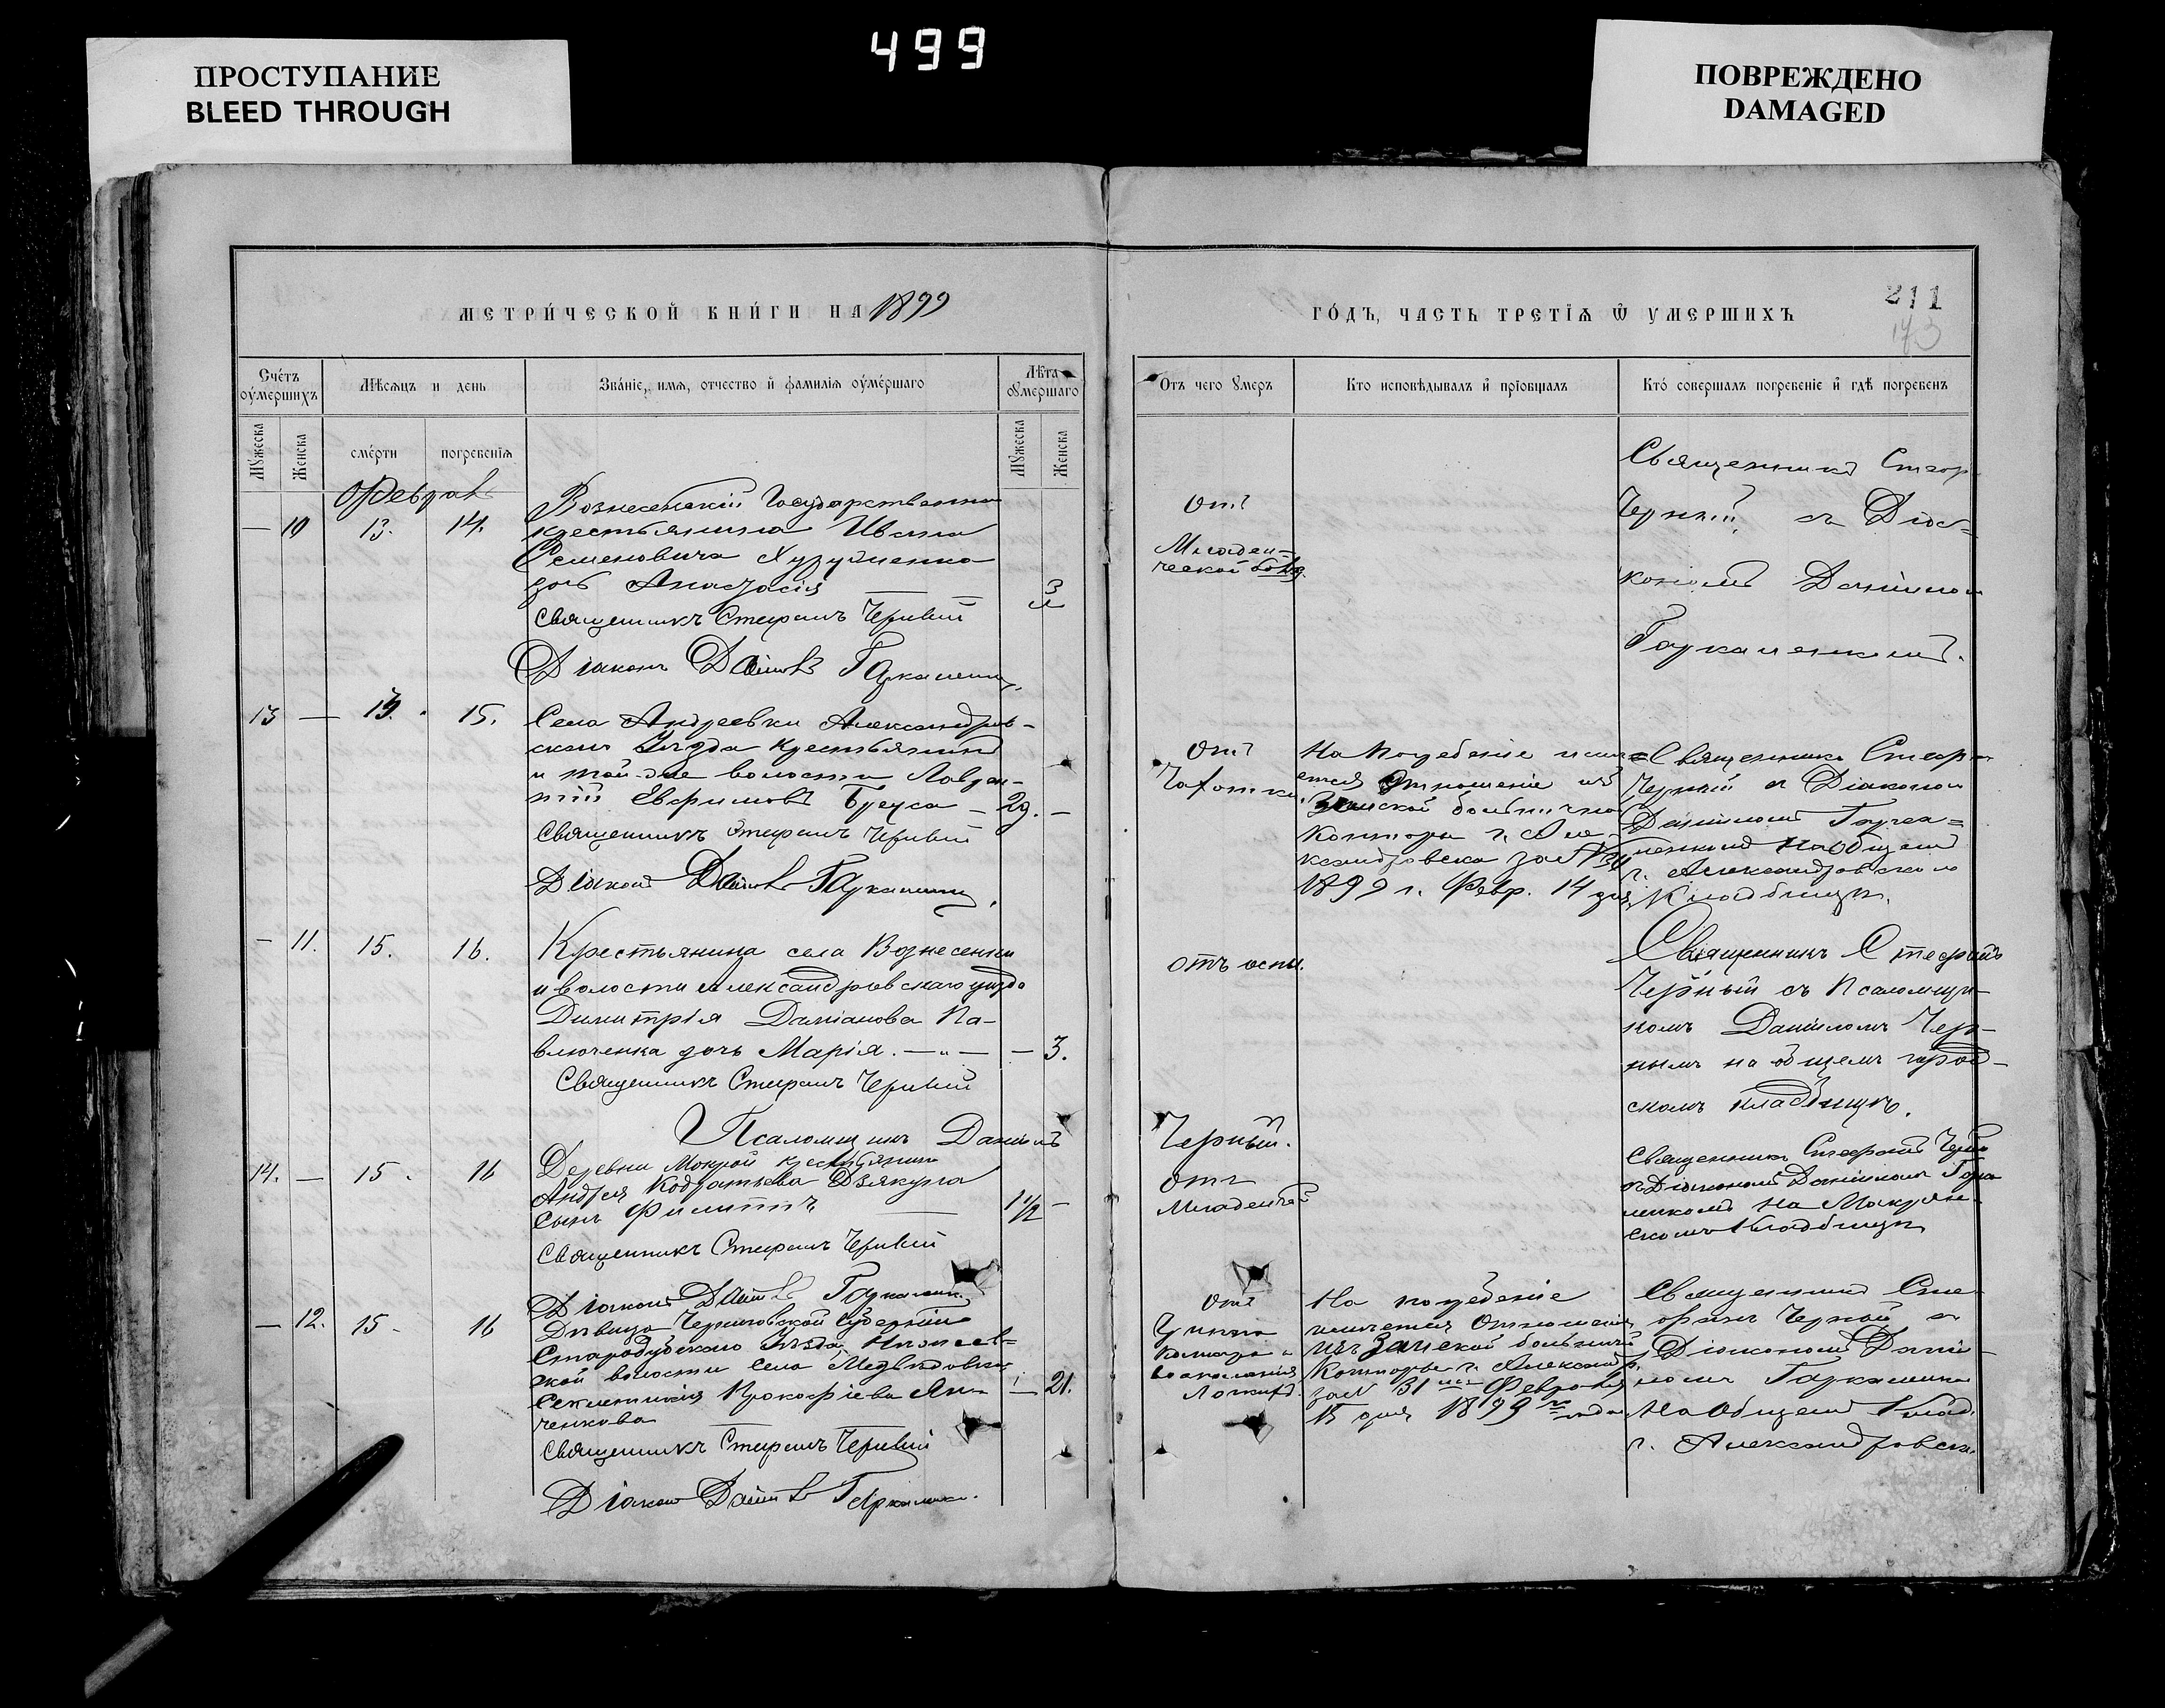 499
ПРОСТУПАНИЕ
BLEED THROUGH
ПОВРЕЖДЕНО
DAMAGED
МЕТРИ́ЧЕСКОЙ КНИ́ГИ НА 1899
ГО́ДЪ, ЧАСТЬ ТРЕТЇѦ Ѿ УМЕРШИХЪ
211
173
Сче́тъ оу҆ме́ршихъ
Мѣсѧцъ и день
Зва́нїе, имѧ, отчество й фамилїѧ оу҆ме́ршаго
Лѣта оумершаго
Отъ чего умеръ
Кто исповѣдывалъ й прїобщалъ
Кто́ совершалъ погребенїе й гдѣ погребенъ
Мужеска
Женска
сме́рти
погребенїѧ
Мужеска
Женска
Февраль
— 10 13. 14.
Вознесенскій Государственна
крестьянина Ивана
Семеновича
дочь Анастасія — 3
Священникъ Стефанъ Черный
Діаконъ Даніилъ Гаркаленко
Отъ
Младен-
ческой бол.
Священникъ Стеф
Черный съ Діа-
кономъ Даніилом
Гаркаленкомъ.
13 — 13. 15.
Села Андреевки Александров-
скаго Уѣзда крестьянинъ
и той-же волости Лаврен-
тій Евфимовъ — 29. —
Священникъ Стефанъ Черный
Діаконъ Даніилъ Гаркаленко
Отъ
Чахотки.
На погребеніе имѣ-
ется Отношеніе изъ
Земской больничной
Конторы г. Але-
ксандровска за №
1899 г. Февр. 14 дня
Священникъ Стеф
Черный съ Діакономъ
Даніиломъ Гарка-
ленкомъ на Общемъ
г. Александровскомъ
Кладбищѣ.
— 11. 15. 16.
Крестьянина села Вознесенки
и волости Александровскаго уѣзда
Димитрія Даміанова Па-
влюченка дочь Марія. — „ — — 3.
Священникъ Стефанъ Черный
Псаломщикъ Даніилъ
Черный.
отъ оспы.
Священникъ Стефанъ
Черный съ Псаломщи-
комъ Даніиломъ Чер-
нымъ на общемъ город-
скомъ кладбищѣ.
14. — 15. 16
Деревни Мокрой крестьянина
Андрея Кодратьева Дзякуна
сынъ Филиппъ — 1½ —
Священникъ Стефанъ Черный
Діаконъ Даніилъ Гаркаленко
Отъ
Младенчес
Священникъ Стефанъ Черны
съ Діакономъ Даніиломъ Гарка
ленкомъ на Мокрян-
скомъ Кладбищѣ
— 12. 15 16
Дѣвица Черниговской Губерніи
Стародубскаго Уѣзда
кой волости Села Медвѣдовки
Прокофіева Ян-
ченкова — 21.
Священникъ Стефанъ Черный
Діаконъ Даніилъ Гаркаленко.
Отъ
воспаленія
На погребеніе
имѣется Отношеніе
изъ Земской больничной
Конторы г. Александр.
за № 31 Февраля
15 дня 1899 года
Священникъ Сте-
фанъ Черный съ
Діакономъ Дані-
ломъ Гаркаленко
на Общемъ Клад.
г. Александровск.